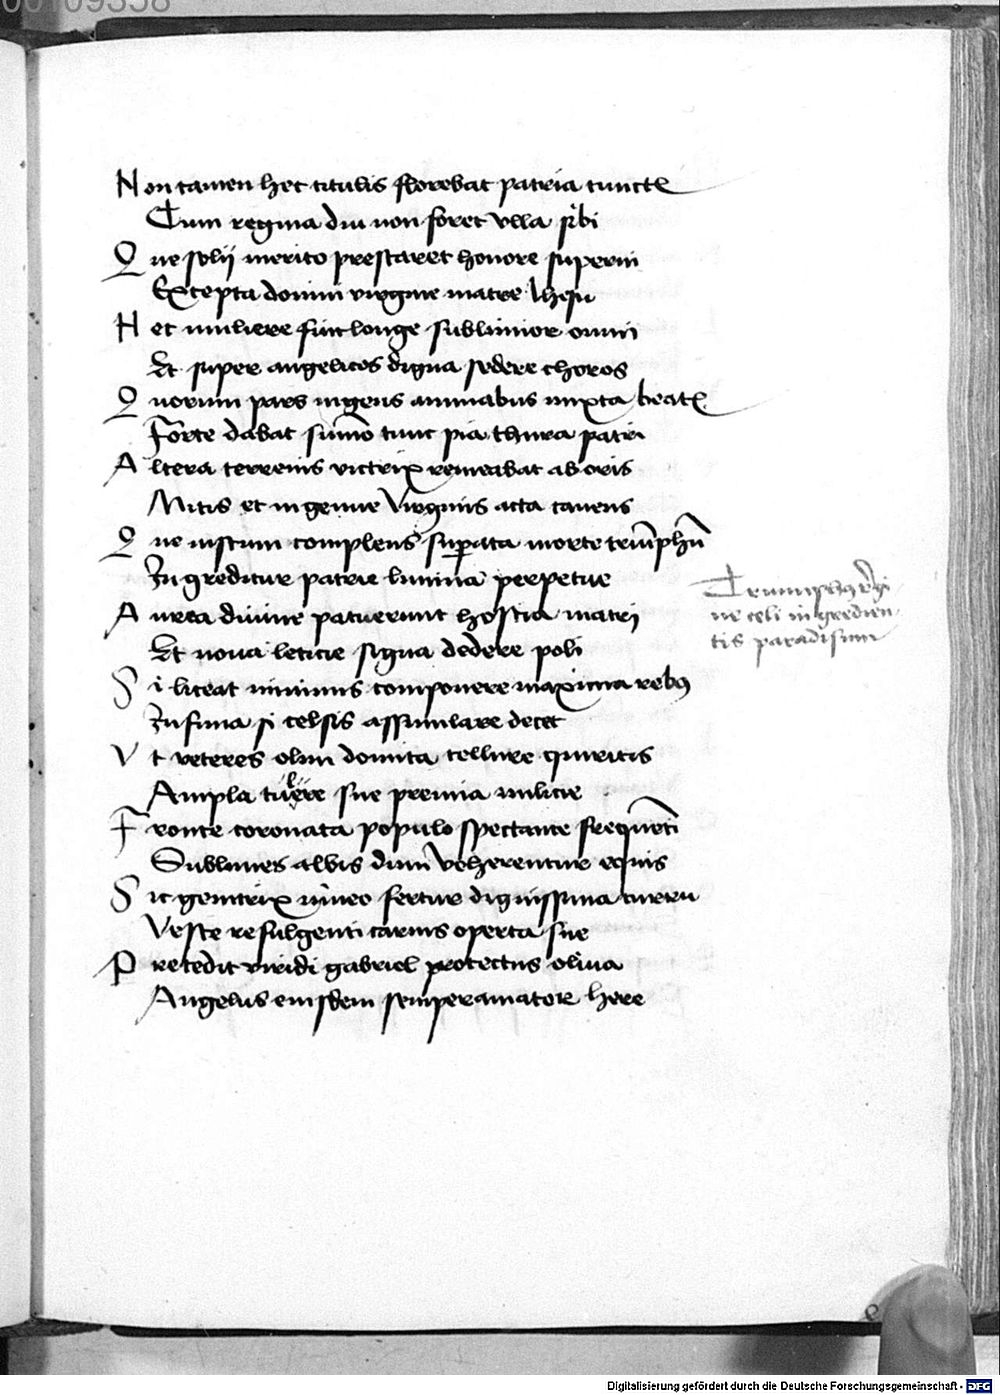 00109358
Non tamen hec titulis florebat patria cunctis
Cum regina diu non foret vlla sibi
Que solij merito prestaret honore superni
Excepta domini virgine matre Ihesu
Hec muliere fuit longe sublimior omni
Et super angelicos digna sedere choros
Quorum pars ingens animabus mixta beatis
Forte dabat sumo tunc pia thura patri
Altera terrenis victrix remeabat ab oris
Mitis et ingenue virginis acta canens
Que iustum complens superata morte triumphum
Ingreditur patrie limina perpetue
Aurea diuine patuerunt hostia matri
Et noua leticie signa dedere poli
Si liceat minimis componere maxima rebus
Infima si celsis assimulare decet
Vt veteres olim domita tellure quirites
Ampla tulere sue premia milicie
Fronte coronata populo spectante frequenti
Sublimes albis dum veherentur equis
Sic genitrix niueo fertur dignissima curru
Veste refulgenti carnis operta sue
Precedit viridi gabriel protectus oliua
Angelus eiusdem semper amator here
Triumphus regi
ne celi ingredien
tis paradisum
Digitalisierung gefördert durch die Deutsche Forschungsgemeinschaft - DFG